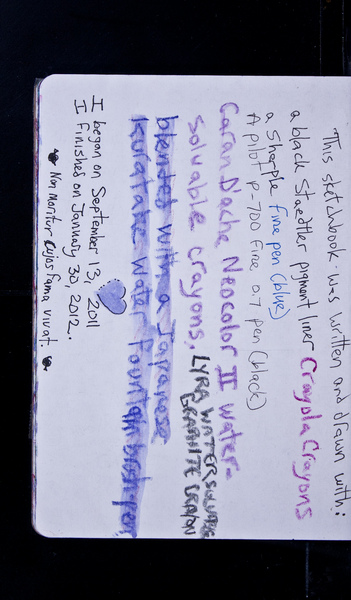 This sketchbook was written and drawn with:
a black Staedtler pigment liner Crayola Crayons
a Sharpie fine pen (blue)
A pilot P-700 Fine 0.7 pen (black)
Caran Dache Neocolor II water-
soluable crayons, LYRA WATER SOLUABLE
GRAPHITE CRAYON
blended with a Japanese
Kuratake Water Fountain brush pen
I began on September 13, 2011
I finished on January 30, 2012.
Non Moritur Cujos Fama vivat.